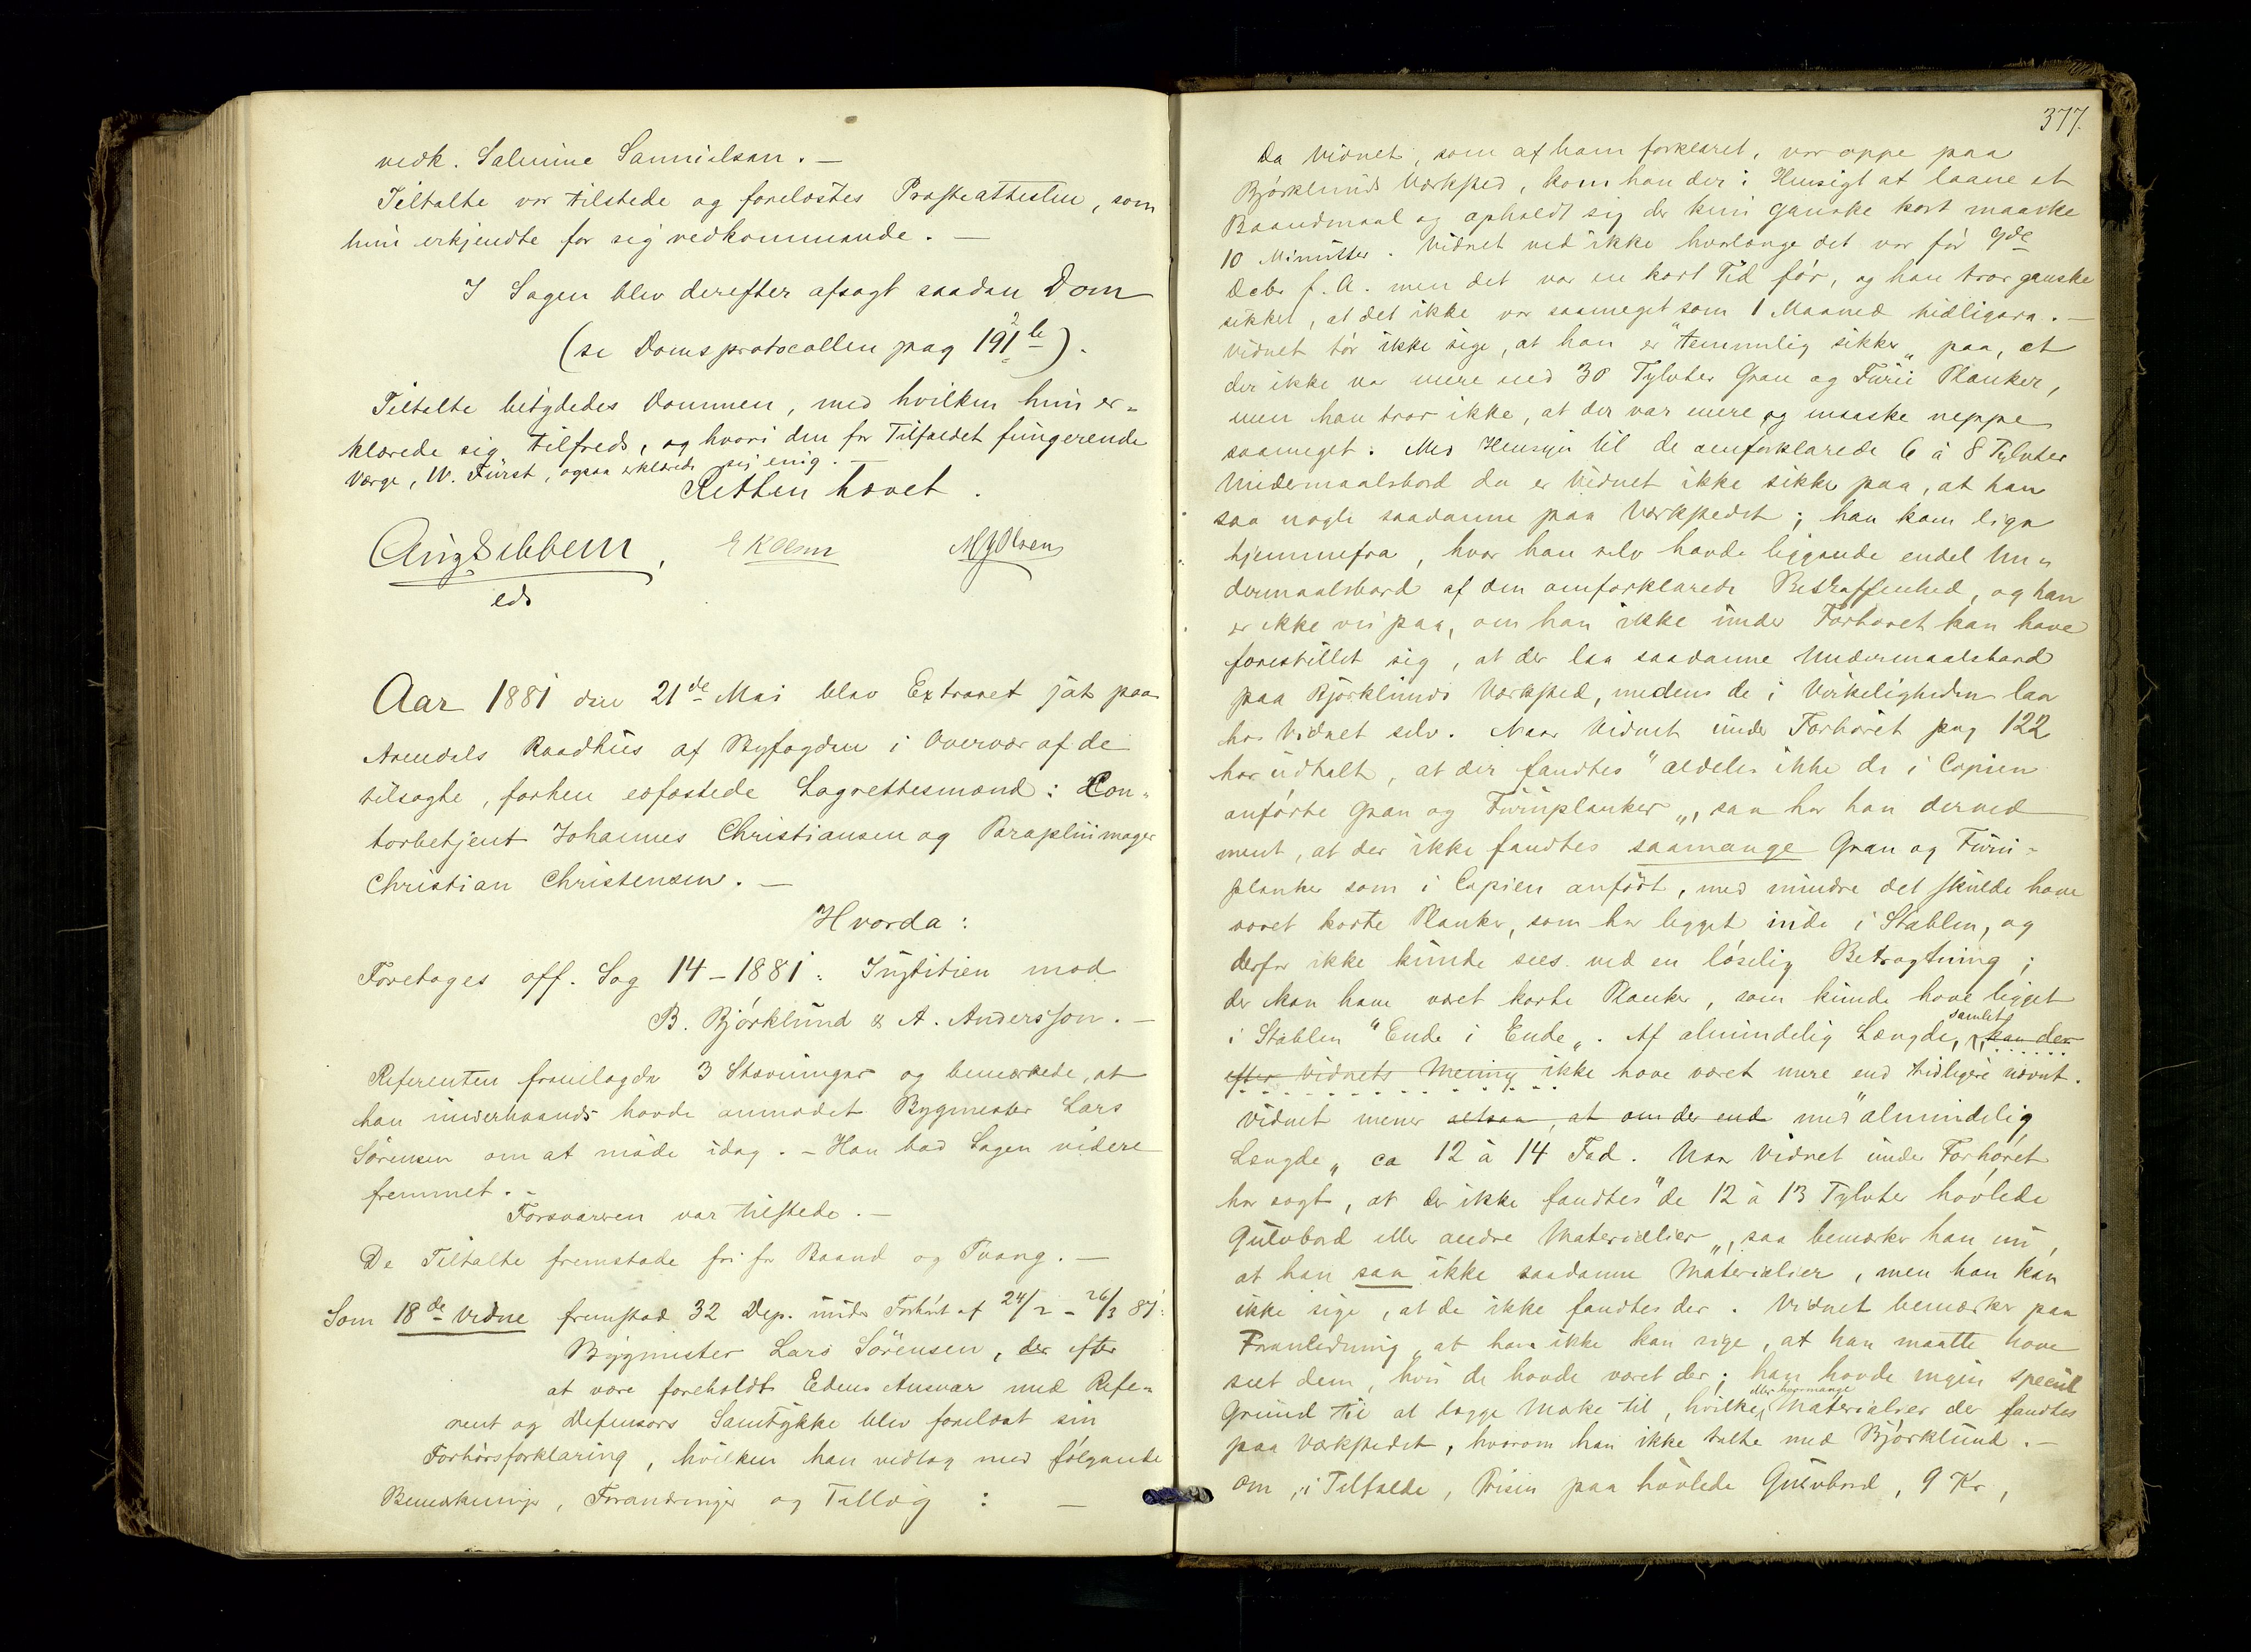 vedk. Salmine Samuelsen. —
Tiltalte var tilstede og forelæstes Præsteattesten, som
hun erkjendte for sig vedkommende. —
I Sagen blev derefter afsagt saadan Dom
(se Domsprotocollen pag 191 b).
Tiltalte betydedes Dommen, med hvilken hun er-
klærede sig tilfreds, og hvori den for Tilfældet fungerende
Værge, W. Fürst, ogsaa erklærede sig enig. —
Retten hævet.
Aug Sibbern, E K Olsen M J Olsen
eds
Aar 1881 den 21de Mai blev Extraret sat paa
Arendals Raadhus af Byfogden i Overvær af de
tilsagte, forhen edfæstede Lagrettesmænd: Con-
torbetjent Johannes Christiansen og Paraplüimager
Christian Christensen. —
Hvorda:
Foretages off. Sag 14-1881: Justitien mod
B. Bjørklund & A. Andersson. —
Referenten fremlagde 3 Stævninger og bemærkede, at
han underhaands havde anmodet Bygmester Lars
Sørensen om at møde idag. – Han bad Sagen videre
fremmet.
Forsvareren var tilstede. —
De Tiltalte fremstode fri for Baand og Tvang. —
Som 18de Vidne fremstod 32 Dep. under Forhør af 24/2 – 26/3 81:
Bygmester Lars Sörensen, der efter
at være foreholdt Edens Ansvar med Refe-
rent og Defensors Samtykke blev forelæst sin
Forhørsforklaring, hvilken han vedtog med følgende
Bemærkninger, Forandringer og Tillæg: —
377.
Da Vidnet, som af ham forklaret, var oppe paa
Bjørklunds Værksted, kom han der i Hensigt at laane et
Baandmaal og opholdt sig der kun ganske kort maaske
10 Minutter. Vidnet ved ikke hvorlænge det var før 9de
Debr f. A. men det var en kort Tid før, og han tror ganske
sikkert, at det ikke var saameget som 1 Maaned tidligere. —
Vidnet tør ikke sige, at han er "temmelig sikker" paa, at
der ikke var mere end 30 Tylvter Gran og Furu Planker,
men han tror ikke, at der var mere og maaske neppe
saameget. Med Hensyn til de omforklarede 6 à 8 Tylvter
Undermaalsbord da er Vidnet ikke sikker paa, at han
saa nogle saadanne paa Værkstedet; han kom lige
hjemmefra, hvor han selv havde liggende endel Un-
dermaalsbord af den omforklarede Beskaffenhed, og han
er ikke vis paa, om han ikke under Forhøret kan have
forestillet sig, at der laa saadanne Undermaalsbord
paa Bjørklunds Værksted, medens de i Virkeligheden laa
hos Vidnet selv. Naar Vidnet under Forhøret pag 122
har udtalt, at der fandtes "aldeles ikke de i Copien
anførte Gran og Furuplanker", saa har han derved
ment, at der ikke fandtes saamange Gran og Furu-
planker som i Copien anført, med mindre det skulde have
været korte Planker, som har ligget inde i Stablen, og
derfor ikke kunde sees ved en løselig Betragtning;
der kan have været korte Planker, som kunde have ligget
i Stablen "Ende i Ende". Af almindelig Længde, samlet, kan der
efter Vidnets Mening ikke have været mere end tidligere nævnt.
Vidnet mener altsaa, at om der end med "almindelig
Længde" ca 12 à 14 Fod. Naar Vidnet under Forhøret
har sagt, at der ikke fandtes "de 12 à 13 Tylvter høvlede
Gulvbord eller andre Materialier", saa bemærker han nu,
at han saa ikke saadanne Materialier, men han kan
ikke sige, at de ikke fandtes der. Vidnet bemærker paa
Foranledning, at han ikke kan sige, at han maatte have
seet dem, hvis de havde været der; han havde ingen speciel
Grund til at lægge Mærke til, hvilke eller hvormange Materialier der fandtes
paa Værkstedet, hvorom han ikke talte med Bjørklund. —
Om, i Tilfælde, Prisen paa høvlede Gulvbord, 9 Kr,